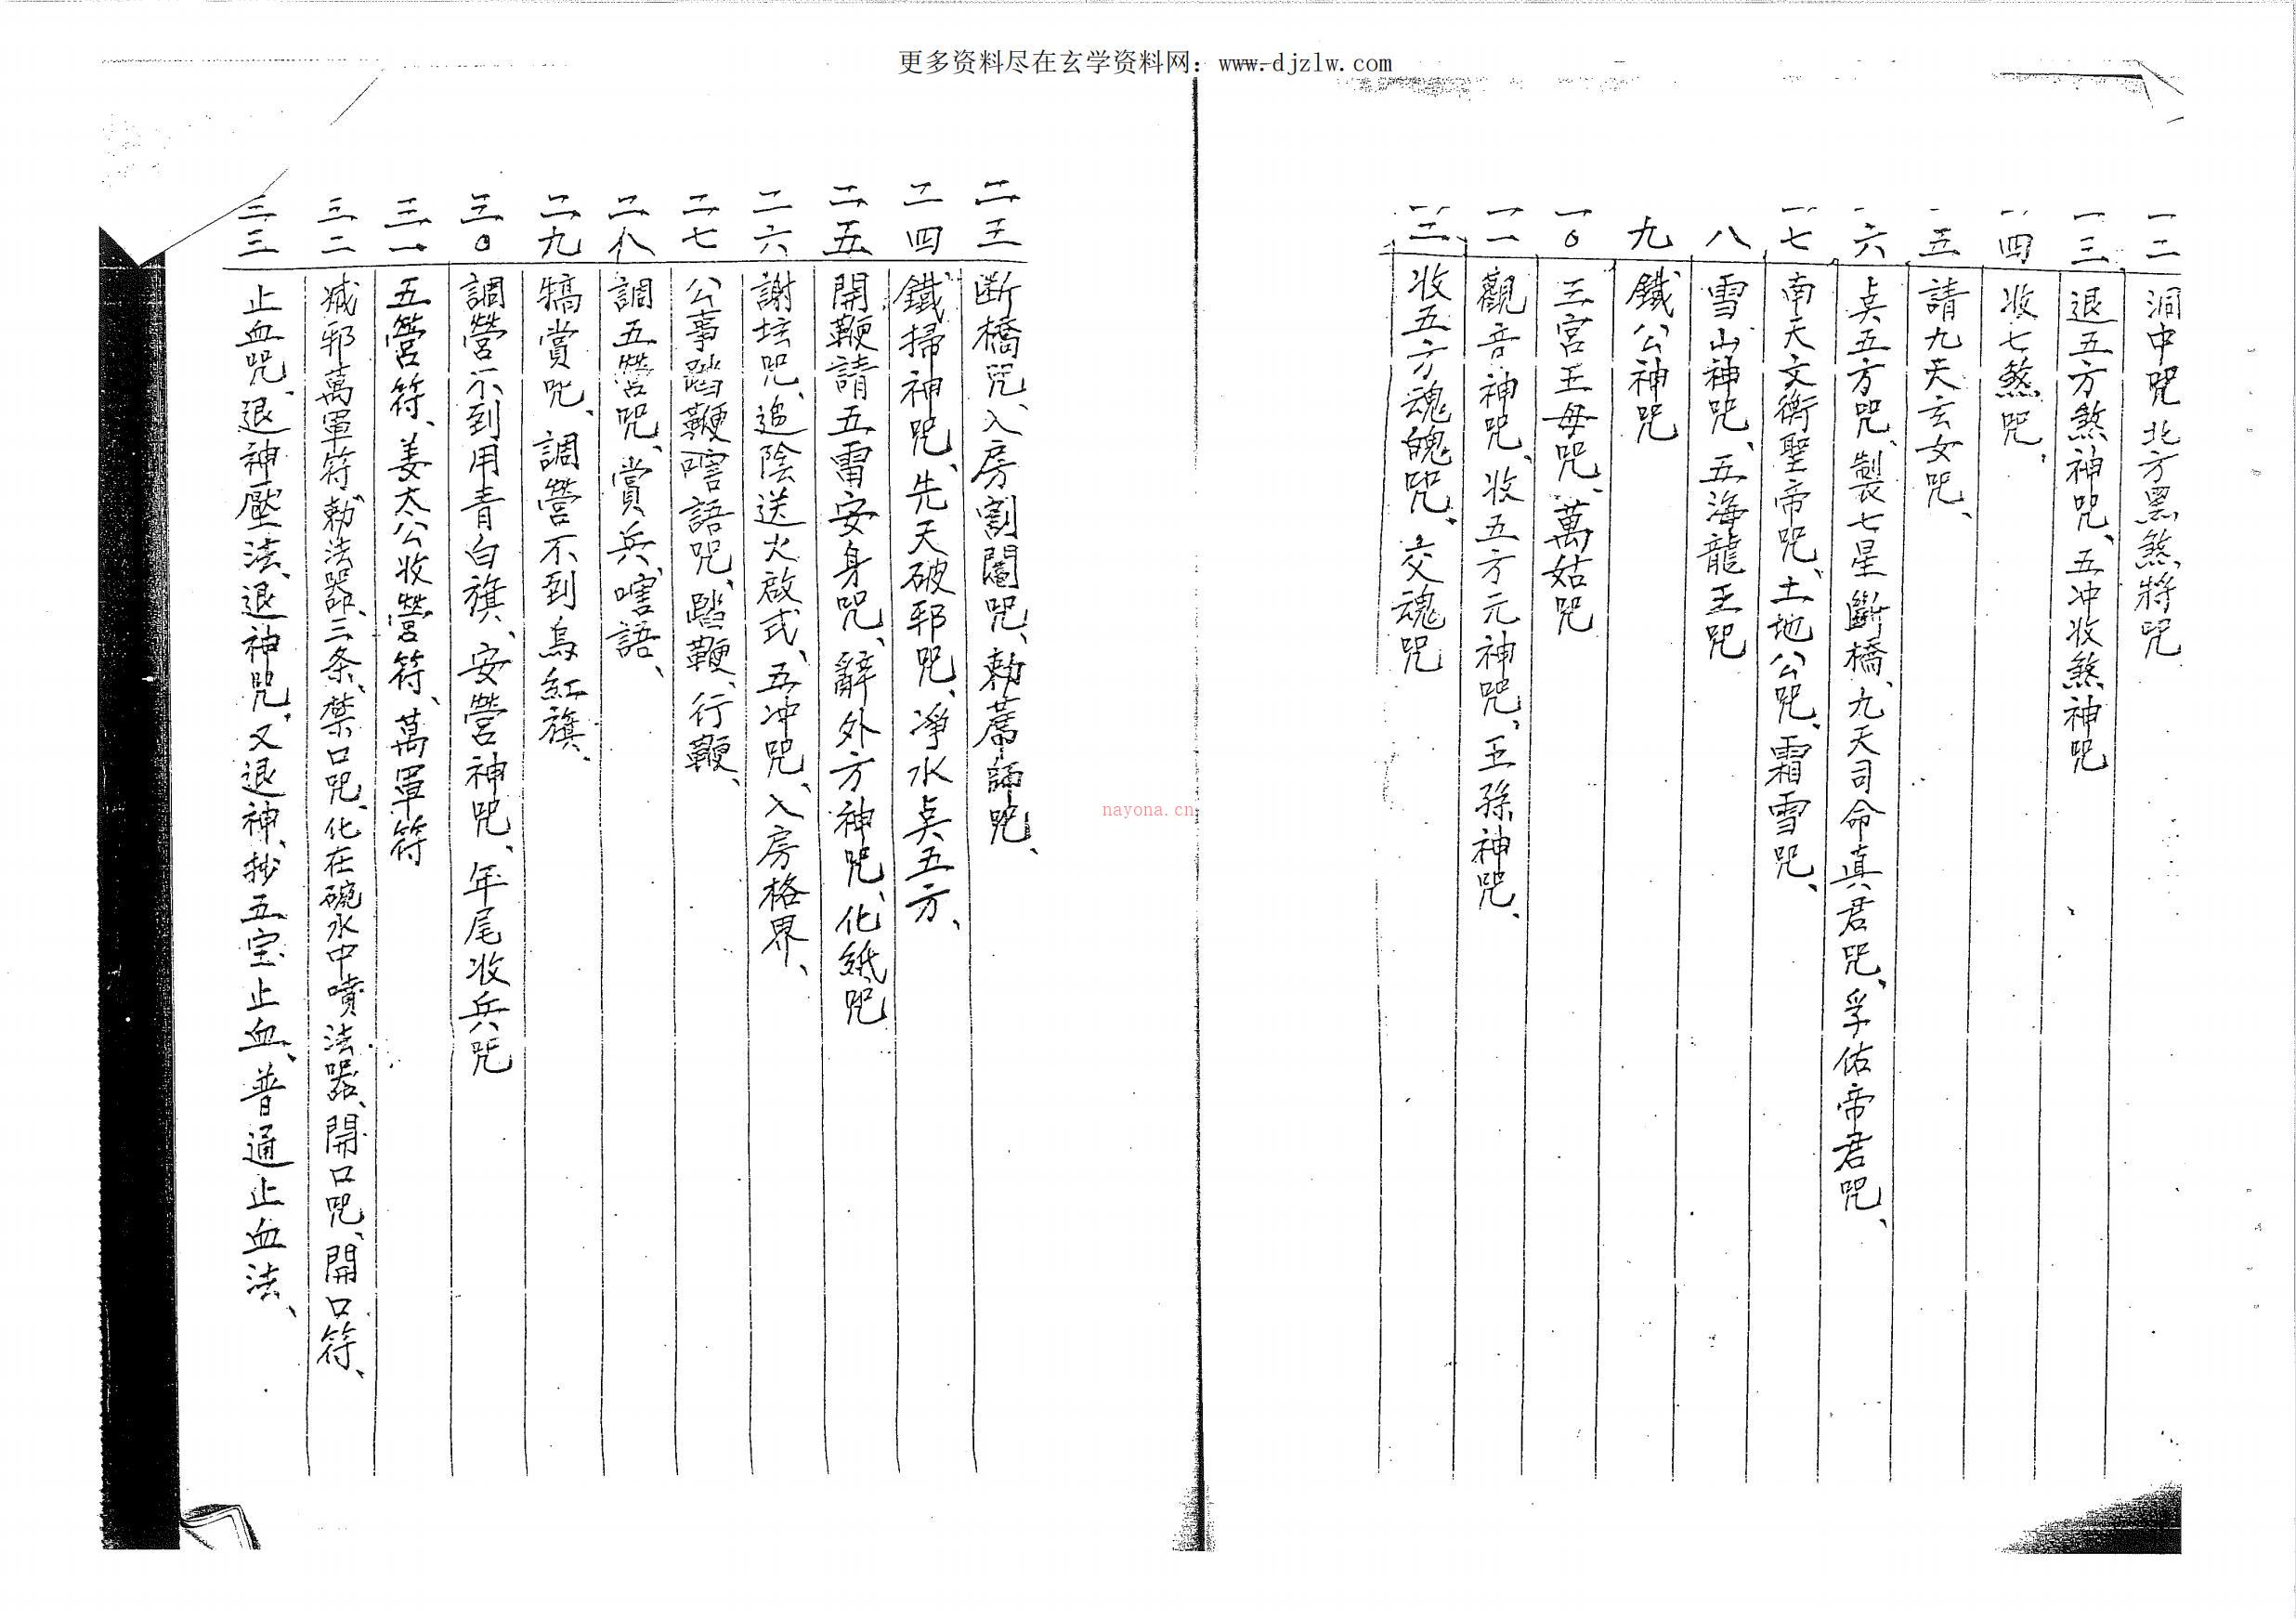 更多资料尽在玄学资料网：www.djzlw.com
一二 洞中咒北方黑煞将咒
一三 退五方煞神咒、五冲收煞神咒
一四 收七煞咒、
一五 請九天玄女咒、
一六 奌五方咒、製七星斷橋、九天司命真君咒、孚佑帝君咒、
一七 南天文衡聖帝咒、土地公咒、霜雪咒、
八 雪山神咒、五海龍王咒
九 鐵公神咒
一〇 三宮王母咒、萬姑咒
二一 觀音神咒、收五方元神咒、王孫神咒、
收五方魂魄咒、交魂咒
二三 断橋咒、入房割鬮咒、勅蓆師咒、
二四 鐵掃神咒、先天破邪咒、凈水奌五方、
二五 開鞭請五雷安身咒、辭外方神咒、化紙咒
二六 謝坛咒、追陰送火啟式、五冲咒、入房格界、
二七 公事踏鞭喀語咒、踏鞭、行鞭、
二八 調五營咒、賞兵喀語、
二九 犒賞咒、調營不到烏紅旗、
三〇 調營不到用青白旗、安營神咒、年尾收兵咒
三一 五營符、姜太公收營符、萬軍符
三二 滅邪萬軍符勅法器、三条、禁口咒、化在碗水中噴法器、開口咒、開口符、
三三 止血咒、退神壓法、退神咒、又退神、抄五宝止血、普通止血法、
nayona.cn